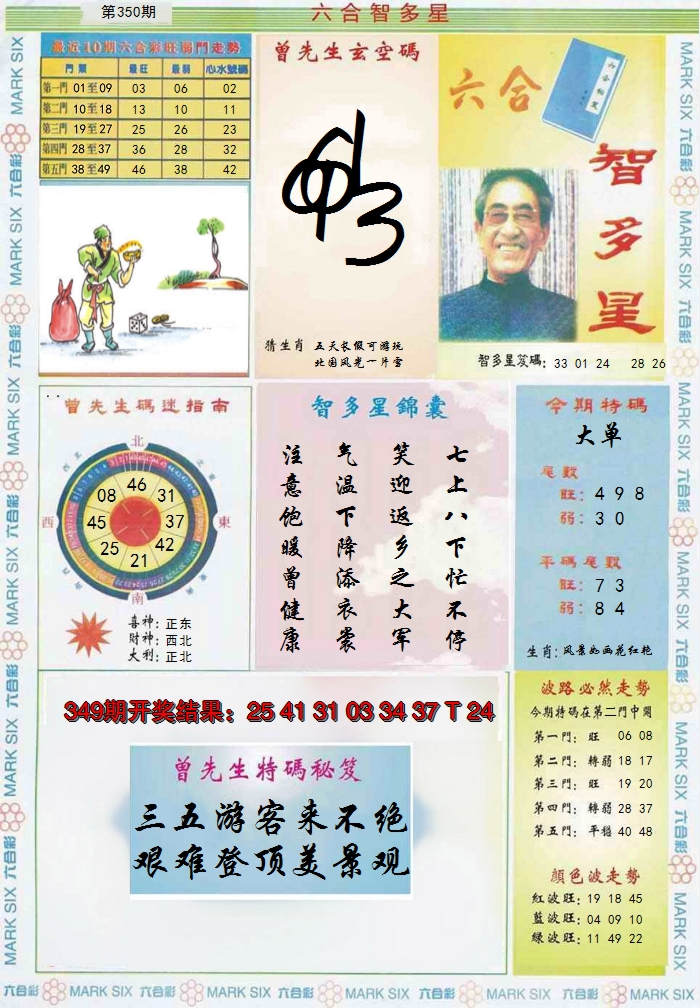 第350期
六合智多星
最近10期六合彩旺弱門走勢
門票 最旺 最弱 心水號碼
第一門 01至09 03 06 02
第二門 10至18 13 10 11
第三門 19至27 25 26 23
第四門 28至37 36 28 32
第五門 38至49 46 38 42
曾先生玄空碼
猜生肖 五天长假可游玩
北国风光一片雪
六合
智多星
智多星笈碼: 33 01 24 28 26
曾先生碼迷指南
北
東
南
西
46
31
37
42
21
25
45
08
喜神: 正东
財神: 西北
大利: 正北
智多星錦囊
七上八下忙不停
笑迎返乡之大军
气温下降添衣裳
注意饱暖曾健康
今期特碼
大单
尾數
旺: 4 9 8
弱: 3 0
平碼尾數
旺: 7 3
弱: 8 4
生肖: 风景如画花红艳
349期开奖结果: 25 41 31 03 34 37 T 24
曾先生特碼秘笈
三五游客来不绝
艰难登顶美景观
波路必然走勢
今期特碼在第二門中開
第一門: 旺 06 08
第二門: 轉弱 18 17
第三門: 旺 19 20
第四門: 轉弱 28 37
第五門: 平穩 40 48
顏色波走勢
紅波旺: 19 18 45
藍波旺: 04 09 10
綠波旺: 11 49 22
MARK SIX 六合彩